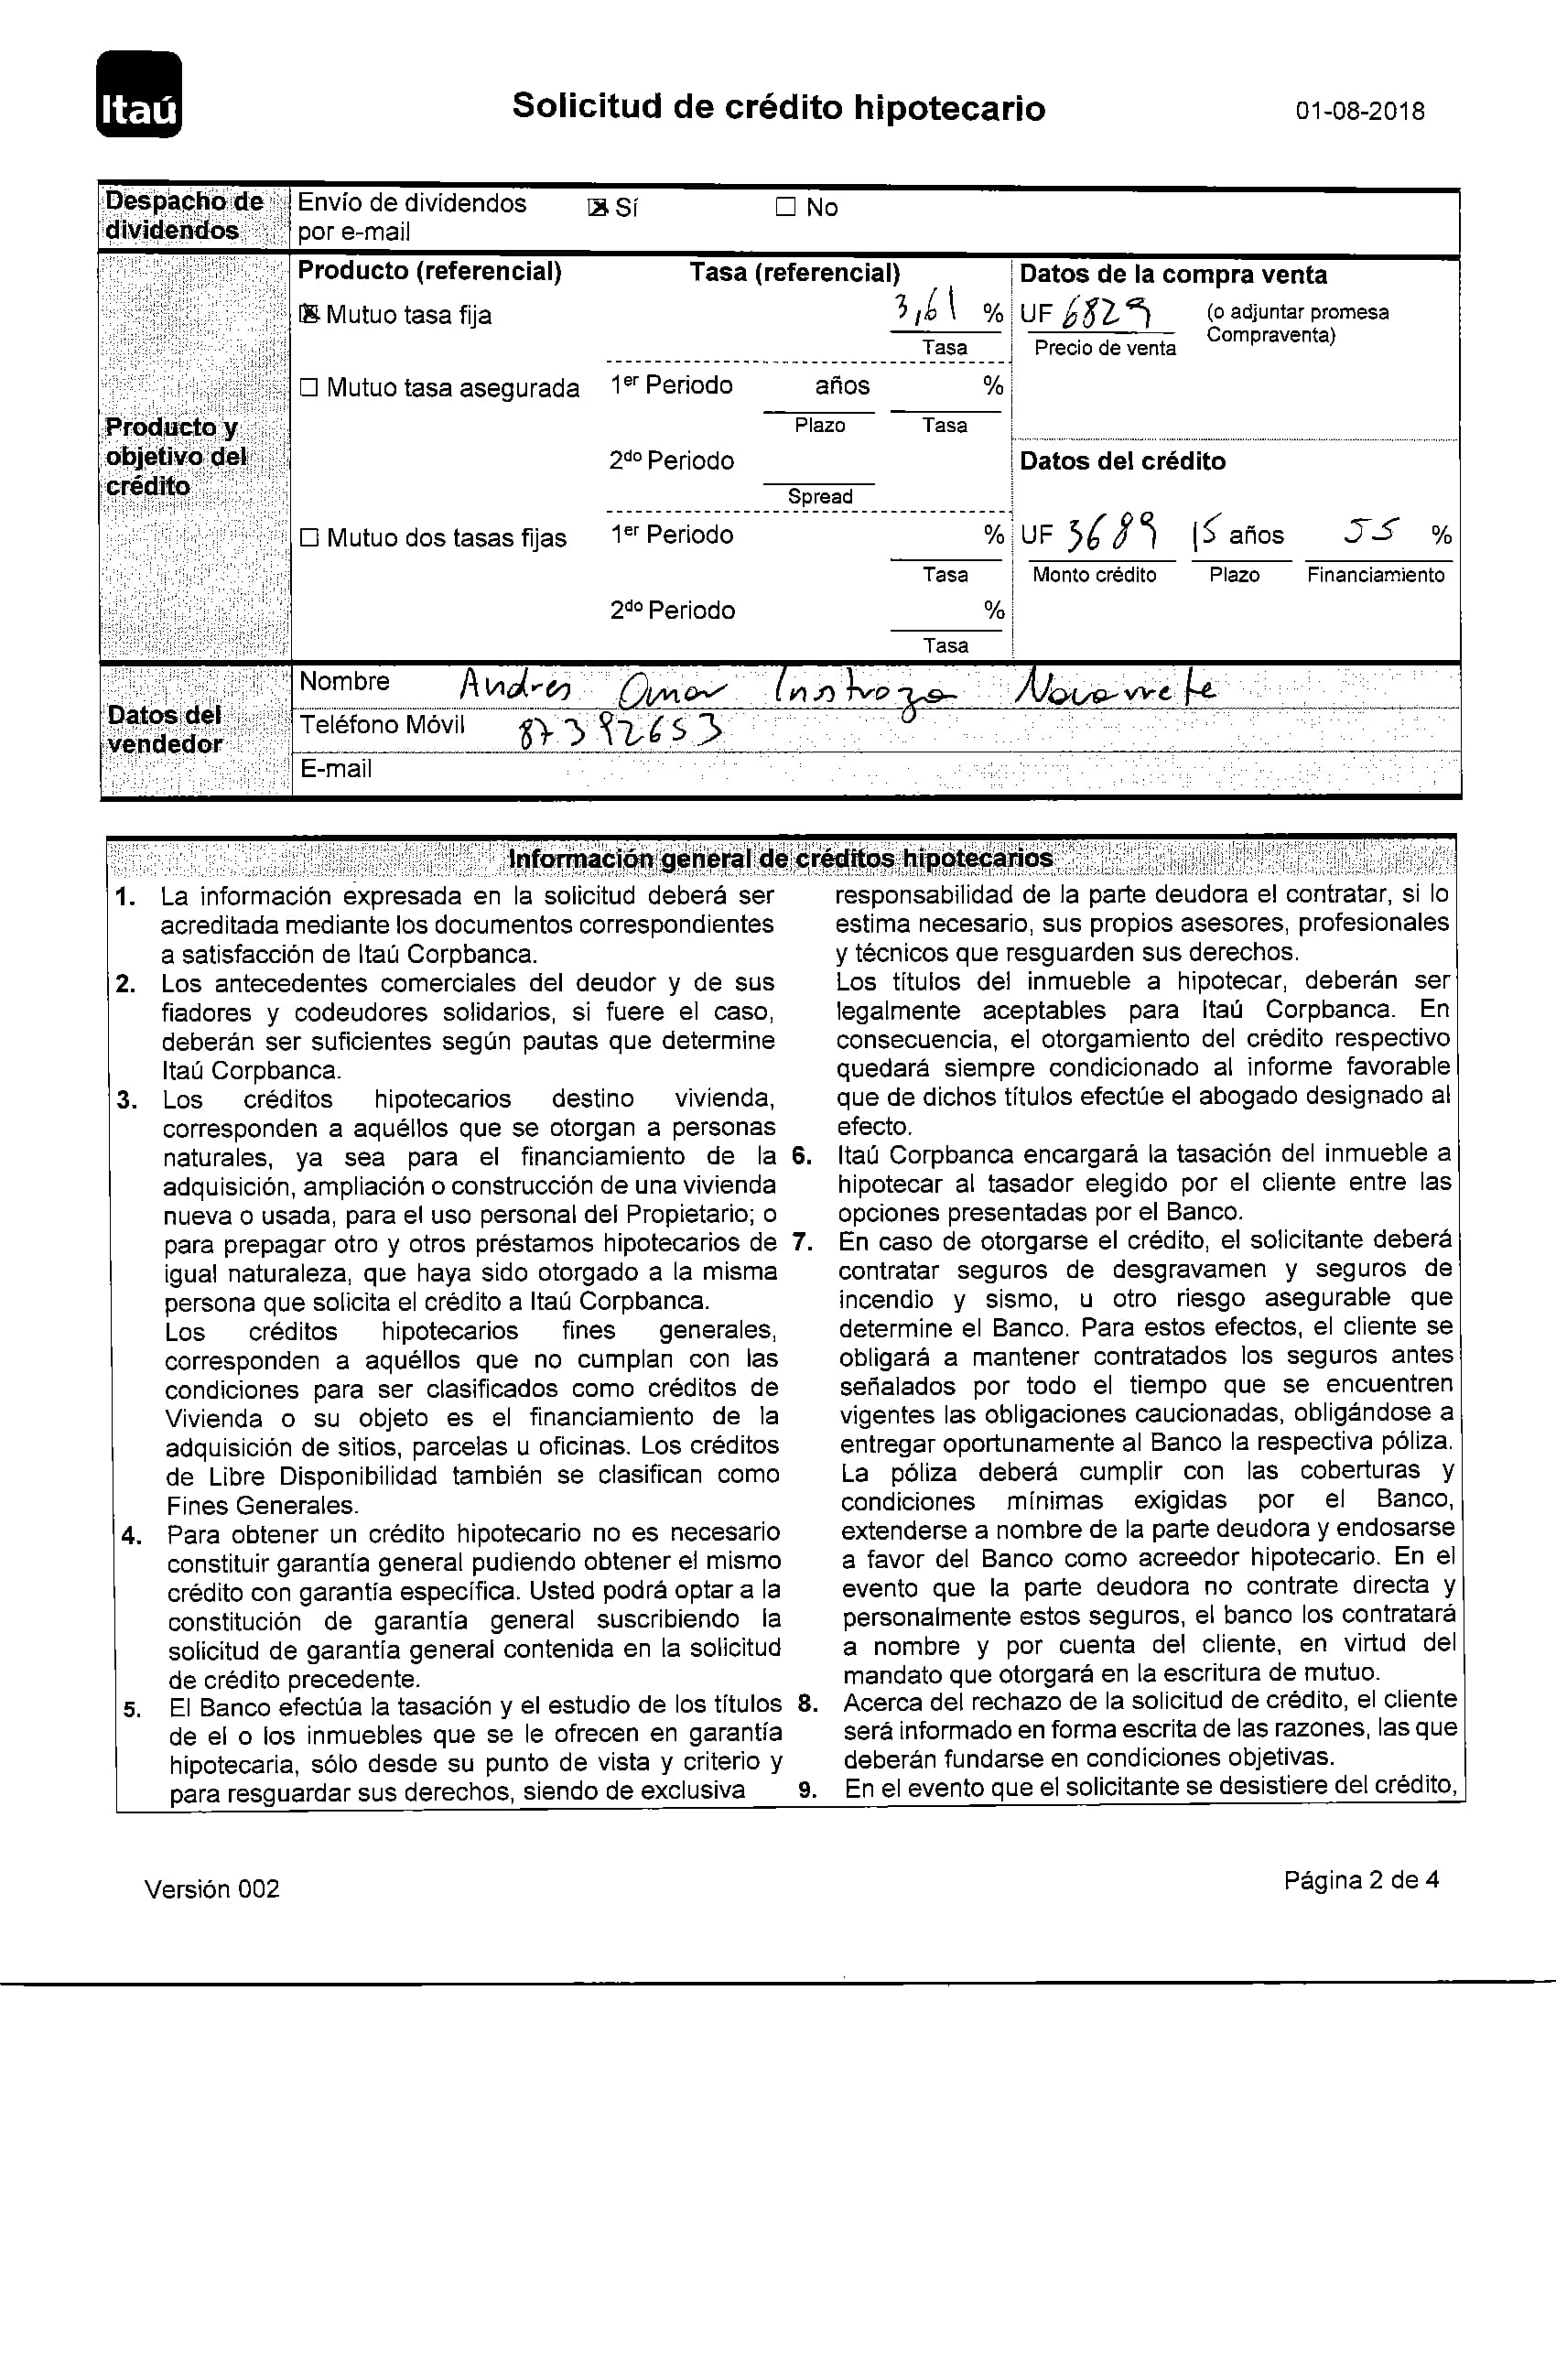 Itaú
Solicitud de crédito hipotecario
01-08-2018
Despacho de dividendos
Envío de dividendos por e-mail
☒ Sí
☐ No
Producto y objetivo del crédito
Producto (referencial)
Tasa (referencial)
Datos de la compra venta
☒ Mutuo tasa fija
3,61 %
Tasa
UF 6829
(o adjuntar promesa Compraventa)
Precio de venta
☐ Mutuo tasa asegurada
1er Periodo
años
%
Plazo
Tasa
2do Periodo
Spread
Datos del crédito
☐ Mutuo dos tasas fijas
1er Periodo
%
Tasa
UF 3689
15 años
55 %
Monto crédito
Plazo
Financiamiento
2do Periodo
%
Tasa
Datos del vendedor
Nombre Andres Omar Inostroza Navarrete
Teléfono Móvil 87392653
E-mail
Información general de créditos hipotecarios
1. La información expresada en la solicitud deberá ser
acreditada mediante los documentos correspondientes
a satisfacción de Itaú Corpbanca.
2. Los antecedentes comerciales del deudor y de sus
fiadores y codeudores solidarios, si fuere el caso,
deberán ser suficientes según pautas que determine
Itaú Corpbanca.
3. Los créditos hipotecarios destino vivienda,
corresponden a aquéllos que se otorgan a personas
naturales, ya sea para el financiamiento de la
adquisición, ampliación o construcción de una vivienda
nueva o usada, para el uso personal del Propietario; o
para prepagar otro y otros préstamos hipotecarios de
igual naturaleza, que haya sido otorgado a la misma
persona que solicita el crédito a Itaú Corpbanca.
Los créditos hipotecarios fines generales,
corresponden a aquéllos que no cumplan con las
condiciones para ser clasificados como créditos de
Vivienda o su objeto es el financiamiento de la
adquisición de sitios, parcelas u oficinas. Los créditos
de Libre Disponibilidad también se clasifican como
Fines Generales.
4. Para obtener un crédito hipotecario no es necesario
constituir garantía general pudiendo obtener el mismo
crédito con garantía específica. Usted podrá optar a la
constitución de garantía general suscribiendo la
solicitud de garantía general contenida en la solicitud
de crédito precedente.
5. El Banco efectúa la tasación y el estudio de los títulos
de el o los inmuebles que se le ofrecen en garantía
hipotecaria, sólo desde su punto de vista y criterio y
para resguardar sus derechos, siendo de exclusiva
responsabilidad de la parte deudora el contratar, si lo
estima necesario, sus propios asesores, profesionales
y técnicos que resguarden sus derechos.
Los títulos del inmueble a hipotecar, deberán ser
legalmente aceptables para Itaú Corpbanca. En
consecuencia, el otorgamiento del crédito respectivo
quedará siempre condicionado al informe favorable
que de dichos títulos efectúe el abogado designado al
efecto.
6. Itaú Corpbanca encargará la tasación del inmueble a
hipotecar al tasador elegido por el cliente entre las
opciones presentadas por el Banco.
7. En caso de otorgarse el crédito, el solicitante deberá
contratar seguros de desgravamen y seguros de
incendio y sismo, u otro riesgo asegurable que
determine el Banco. Para estos efectos, el cliente se
obligará a mantener contratados los seguros antes
señalados por todo el tiempo que se encuentren
vigentes las obligaciones caucionadas, obligándose a
entregar oportunamente al Banco la respectiva póliza.
La póliza deberá cumplir con las coberturas y
condiciones mínimas exigidas por el Banco,
extenderse a nombre de la parte deudora y endosarse
a favor del Banco como acreedor hipotecario. En el
evento que la parte deudora no contrate directa y
personalmente estos seguros, el banco los contratará
a nombre y por cuenta del cliente, en virtud del
mandato que otorgará en la escritura de mutuo.
8. Acerca del rechazo de la solicitud de crédito, el cliente
será informado en forma escrita de las razones, las que
deberán fundarse en condiciones objetivas.
9. En el evento que el solicitante se desistiere del crédito,
Versión 002
Página 2 de 4